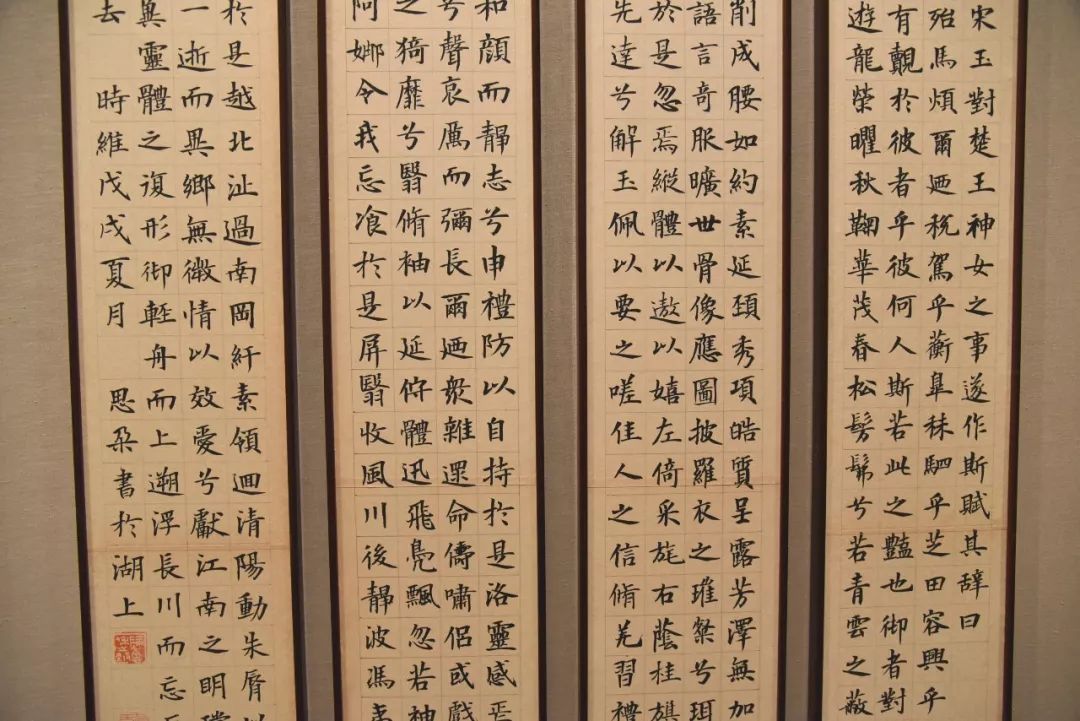 宋玉對楚王神女之事遂作斯賦其辞曰
殆馬煩爾迺稅駕乎蘅皐秣駟乎芝田容與乎
有覿於彼者乎彼何人斯若此之豔也御者對
遊龍榮曜秋鞠華茂春松髣髴兮若青雲之蔽
削成腰如約素延頚秀項皓質呈露芳澤無加
語言奇服曠世骨像應圖披羅衣之璀粲兮珥
於是忽焉縱體以遨以嬉左倚采旄右蔭桂旗
先達兮解玉佩以要之嗟佳人之信脩羌習禮
和顔而靜志兮申禮防以自持於是洛靈感焉
兮聲哀厲而彌長爾迺衆雜遝命儔嘯侶或戲
之猗靡兮翳脩袖以延佇體迅飛鳧飄忽若神
阿娜令我忘飡於是屏翳收風川後靜波馮
於是越北沚過南岡紆素領迴清陽動朱脣
一逝而異鄉無微情以效愛兮獻江南之明
與靈體之復形御輕舟而上遡浮長川而忘
去
時維戊戌夏月 思朶書於湖上